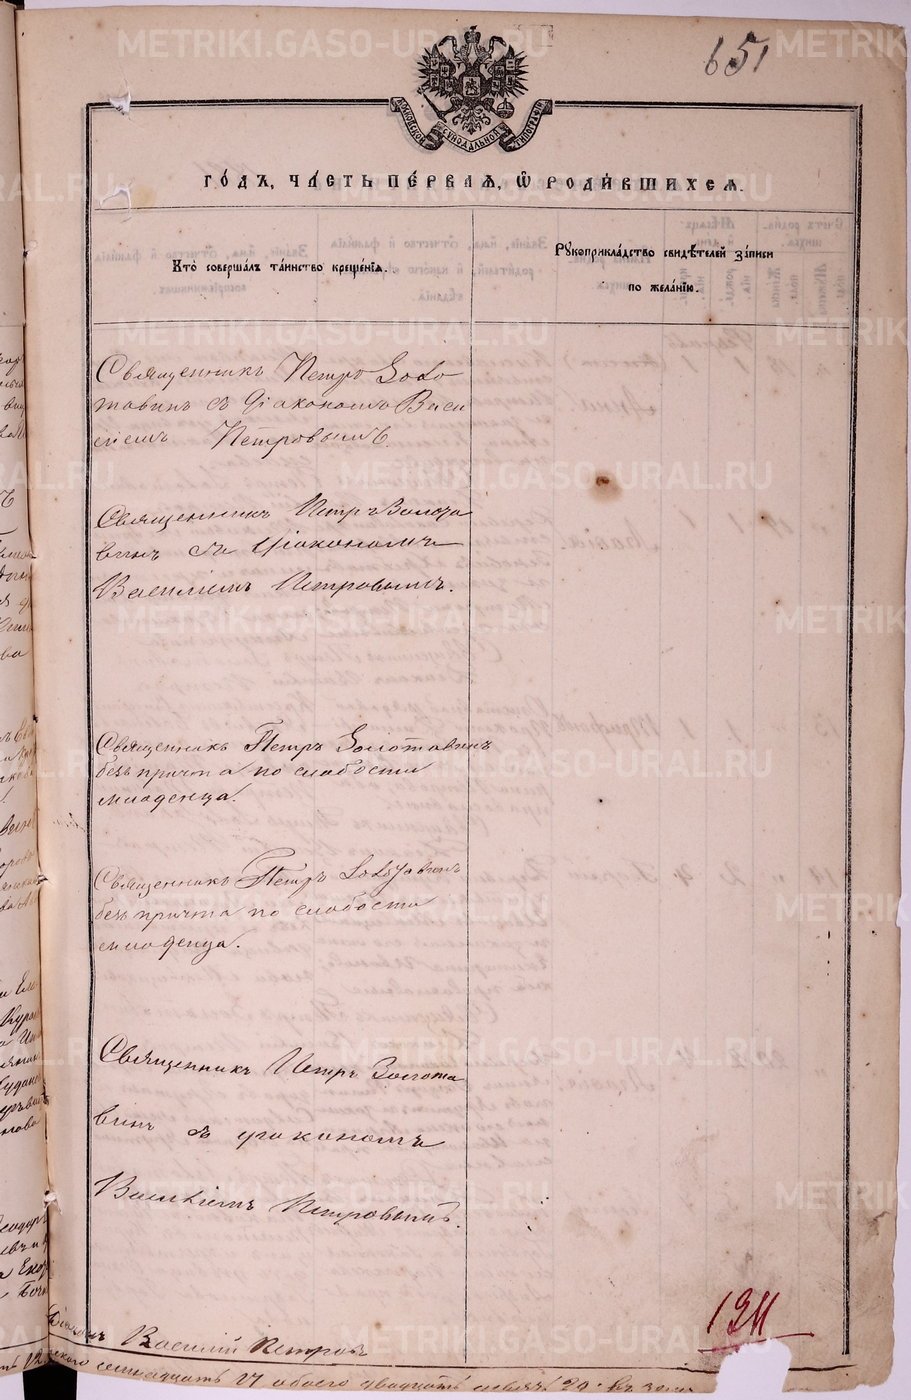 651
МОСКОВСКОЙ СѴНОДАЛЬНОЙ ТИПОГРАФІИ
ГО́ДЪ, ЧА́СТЬ ПЕ́РВАѦ, Ѡ҆ РОДИ́ВШИХСѦ.
Кто̀ соверша́лъ та́инство креще́нїѧ.
Рꙋкоприкла́дство свидѣ́телей за́писи
по жела́нїю.
Священникъ Петръ Золо
тавинъ съ Діакономъ Васи
ліемъ Петровымъ.
Священникъ Петръ Золота
винъ съ Діакономъ
Василіемъ Петровымъ.
Священникъ Петръ Золотавинъ
безъ причта по слабости
младенца.
Священникъ Петръ Золотавинъ
безъ причта по слабости
младенца.
Священникъ Петръ Золота
винъ съ діакономъ
Василіемъ Петровымъ.
1311
Діаконъ Василій Петровъ
семнадцать 17 обоего двадцать 29
METRIKI.GASO-URAL.RU